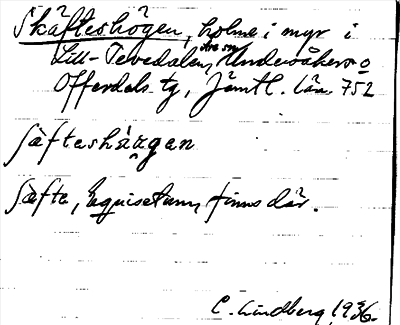 Skäfteshögen, holme i myr i
Lill-Tevedalen, Undersåkers o
Offerdals tg, Jämtl. län. 752
ſàfteshä̀gen
ſàfte, Equisetum, finns där.
C. Lindberg 1936.